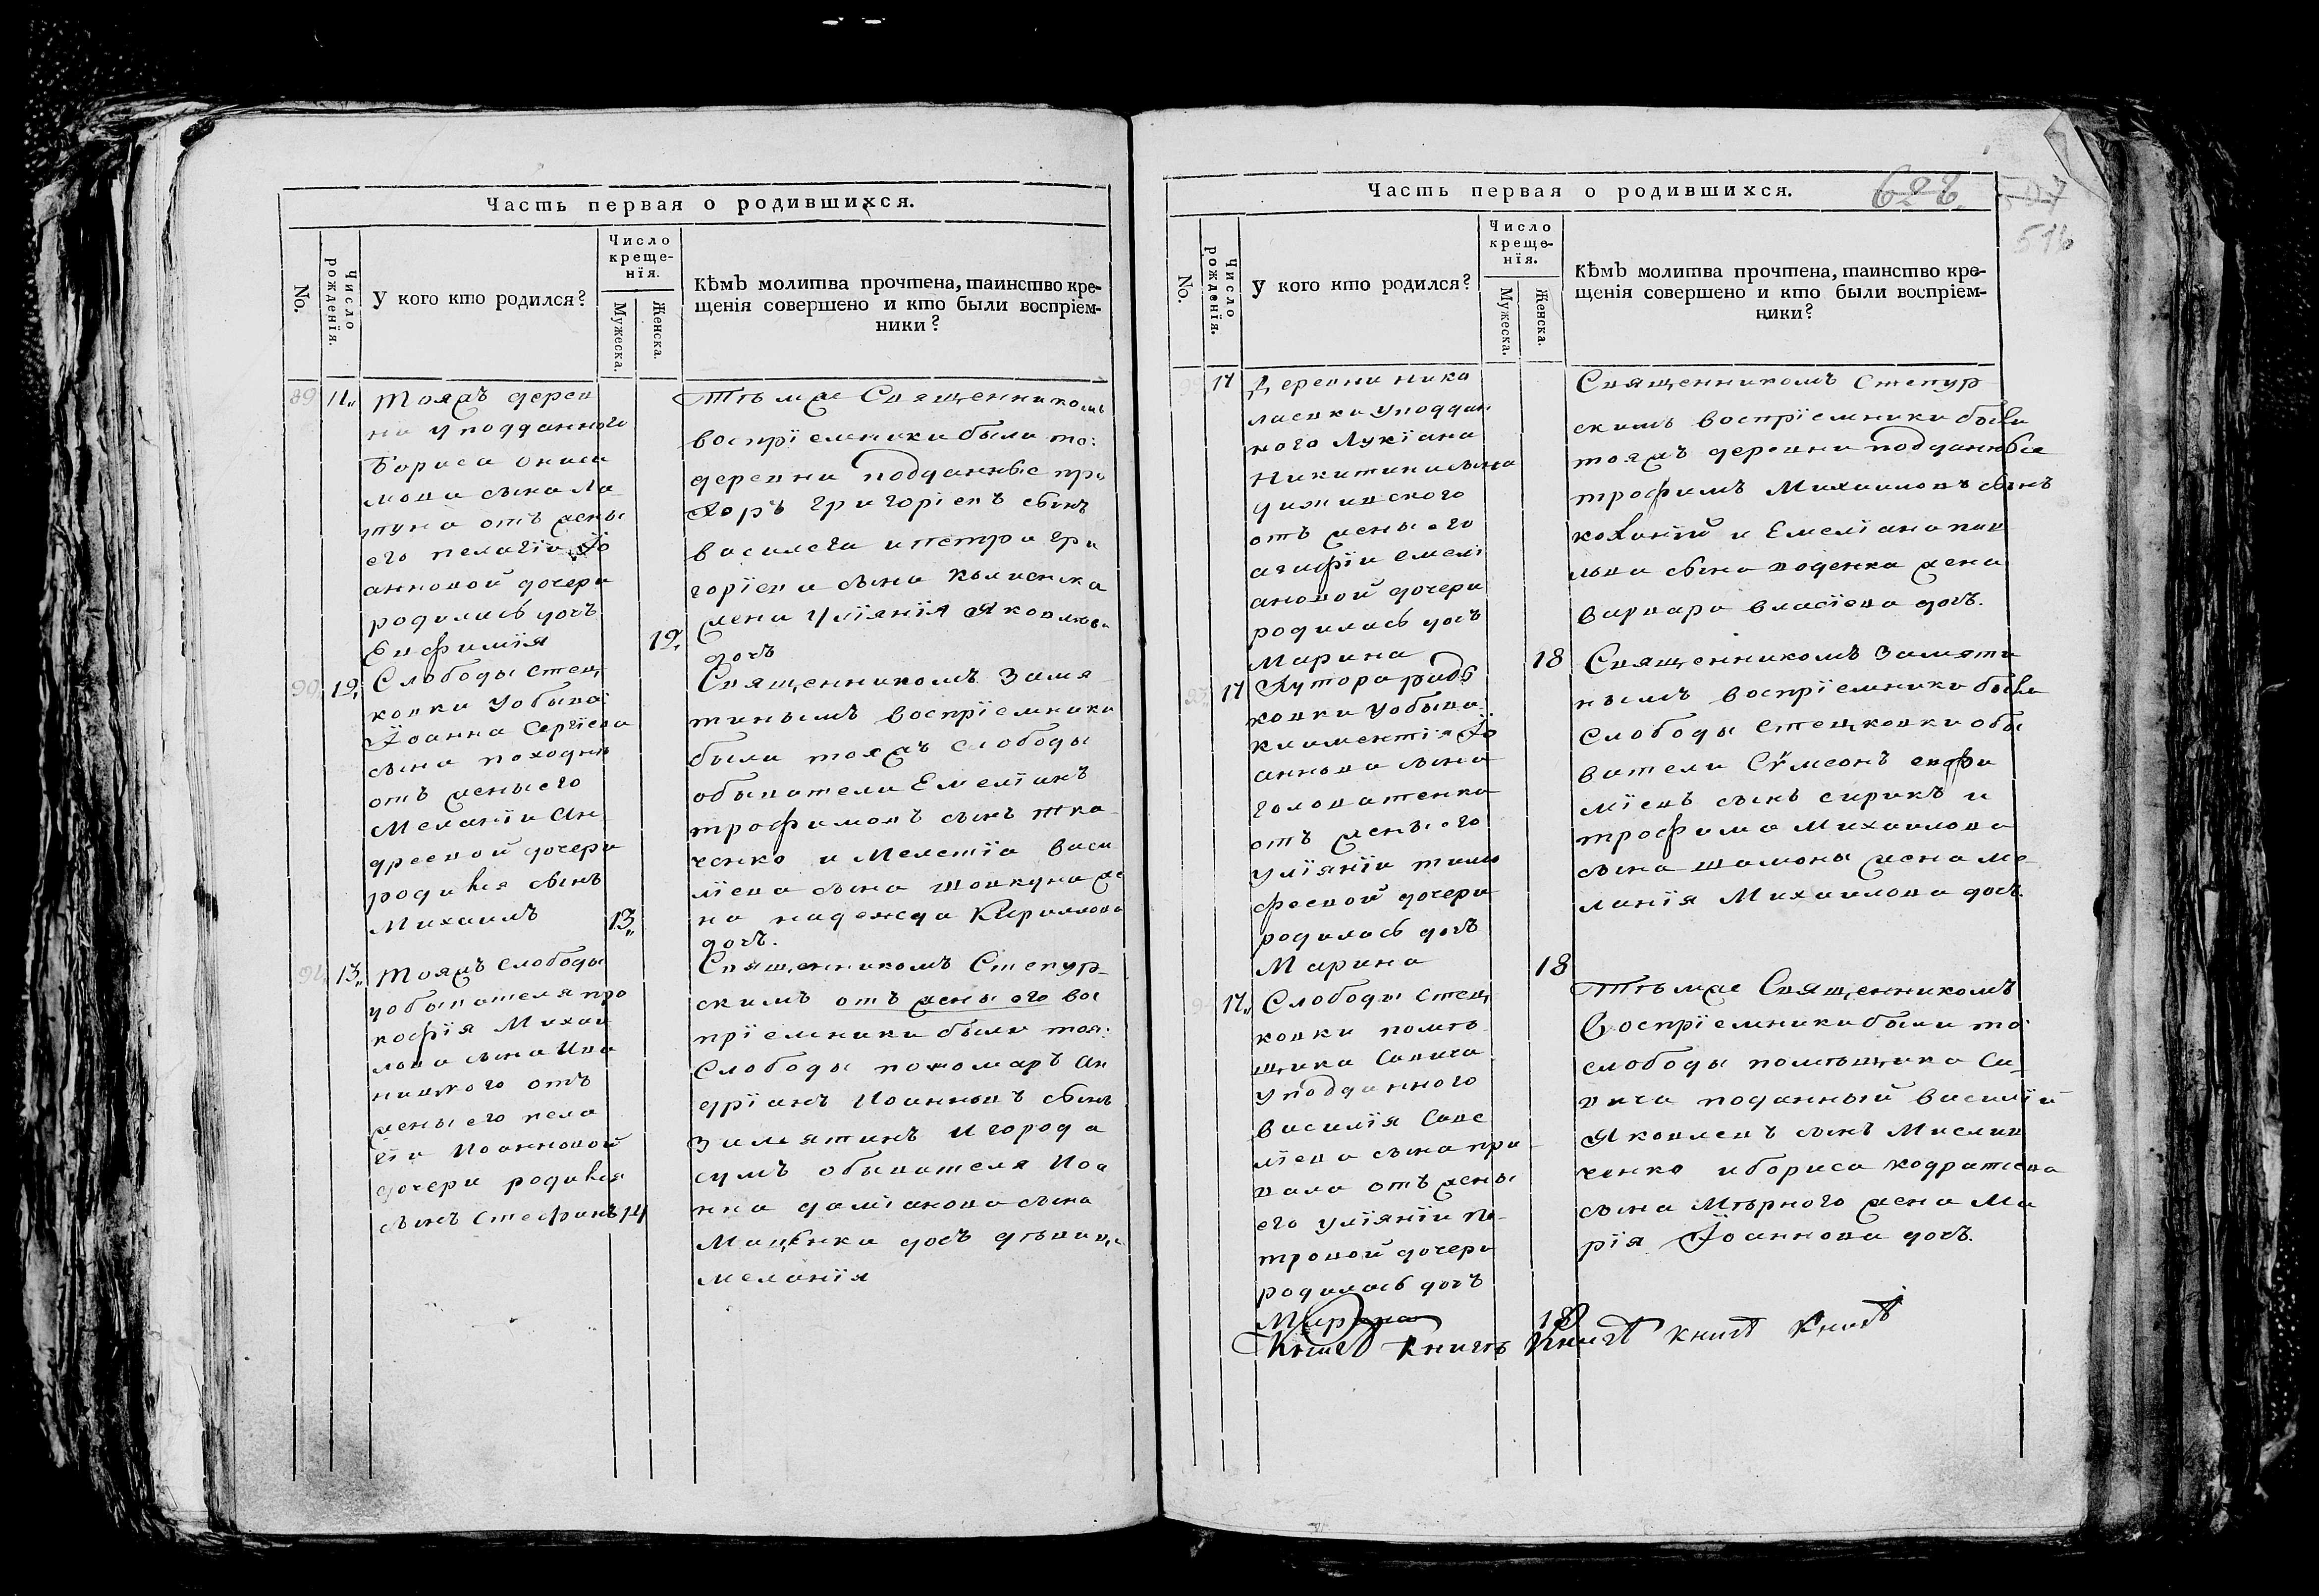 Часть первая о родившихся.
No.
Число рожденїя.
У кого кто родился?
Число
креще-
нїя.
Мужеска.
Женска.
Кѣмъ молитва прочтена, таинство кре-
щенія совершено и кто были воспріем-
ники?
89
11
тояжъ дерев
ни у подданного
Бориса Онисі
мова сына Ла
пуна отъ жены
его пелагіи Іо
анновой дочери
родилась дочь
Евфимія
12
Тѣмже Священникомъ
воспріемники были то:
деревни подданные про
хоръ Григоріевъ сынъ
и петра гри
горіева сына
жена Уліянія Яковлева
дочь
90
12
Слободы Стец
ковки у обыва:
Іоанна Сергіева
сына походни
отъ жены его
Меланіи Ан
дреевой дочери
родился сынъ
Михаилъ
13
Священникомъ Замя
тинымъ воспріемники
были тояжъ слободы
обыватели Емеліанъ
трофимовъ сынъ тка
ченко и Мелетіа Васи
ліева сына шовкуна же
на надежда Кириллова
дочь.
91
13
тояжъ слободы
у обывателя про
кофія Михаи
лова сына Ива
ницкого отъ
жены его пела
гіи Иоанновой
дочери родился
сынъ Стефанъ
14
Священникомъ Степур
скимъ отъ жены его вос
пріемники были тоя:
Слободы пономаръ Ан
дріанъ Иоанновъ сынъ
Замятинъ и города
сумъ обывателя Иоа
нна даміанова сына
Маценка дочь дѣвица
меланія
Часть первая о родившихся.
628
507
516
No.
Число рожденїя.
У кого кто родился?
Число
креще-
нїя.
Мужеска.
Женска.
Кѣмъ молитва прочтена, таинство кре-
щенія совершено и кто были воспріем-
ники?
17
Деревни Нико
лаевки у поддан
ного Лукіана
Никитина сына
отъ жены его
агафіи емелі
ановой дочери
родилась дочь
Марина
18
Священникомъ Степур
скимъ воспріемники были
тояжъ деревни подданные
трофимъ Михаиловъ сынъ
и Емеліана пав
лова сына жена
варвара власіева дочь.
17
Хутора
ковки у обыва:
климентія Іо
аннова сына
отъ жены его
уліяніи тимо
феевой дочери
родилась дочь
Марина
18
Священникомъ Замяти
нымъ воспріемники были
Слободы Стецковки обы
ватели Сѵмеонъ евфи
міевъ сынъ сирикъ и
трофима Михаилова
сына шамона жена ме
ланія Михаилова дочь.
17
Слободы Стец
ковки помѣ
щика Савича
у подданного
Василія Саве
ліева сына при
вала отъ жены
его уліяніи пе
тровой дочери
родилась дочь
Марина
18
Тѣмже Священникомъ
Воспріемники были то:
слободы помѣщика Са
вича поданный василій
Яковлевъ сынъ Мислив
ченко и бориса кодратева
сына Мѣрного жена Ма
рія Іоаннова дочь.
Книгѣ Книгѣ Книгѣ книгѣ Книгѣ